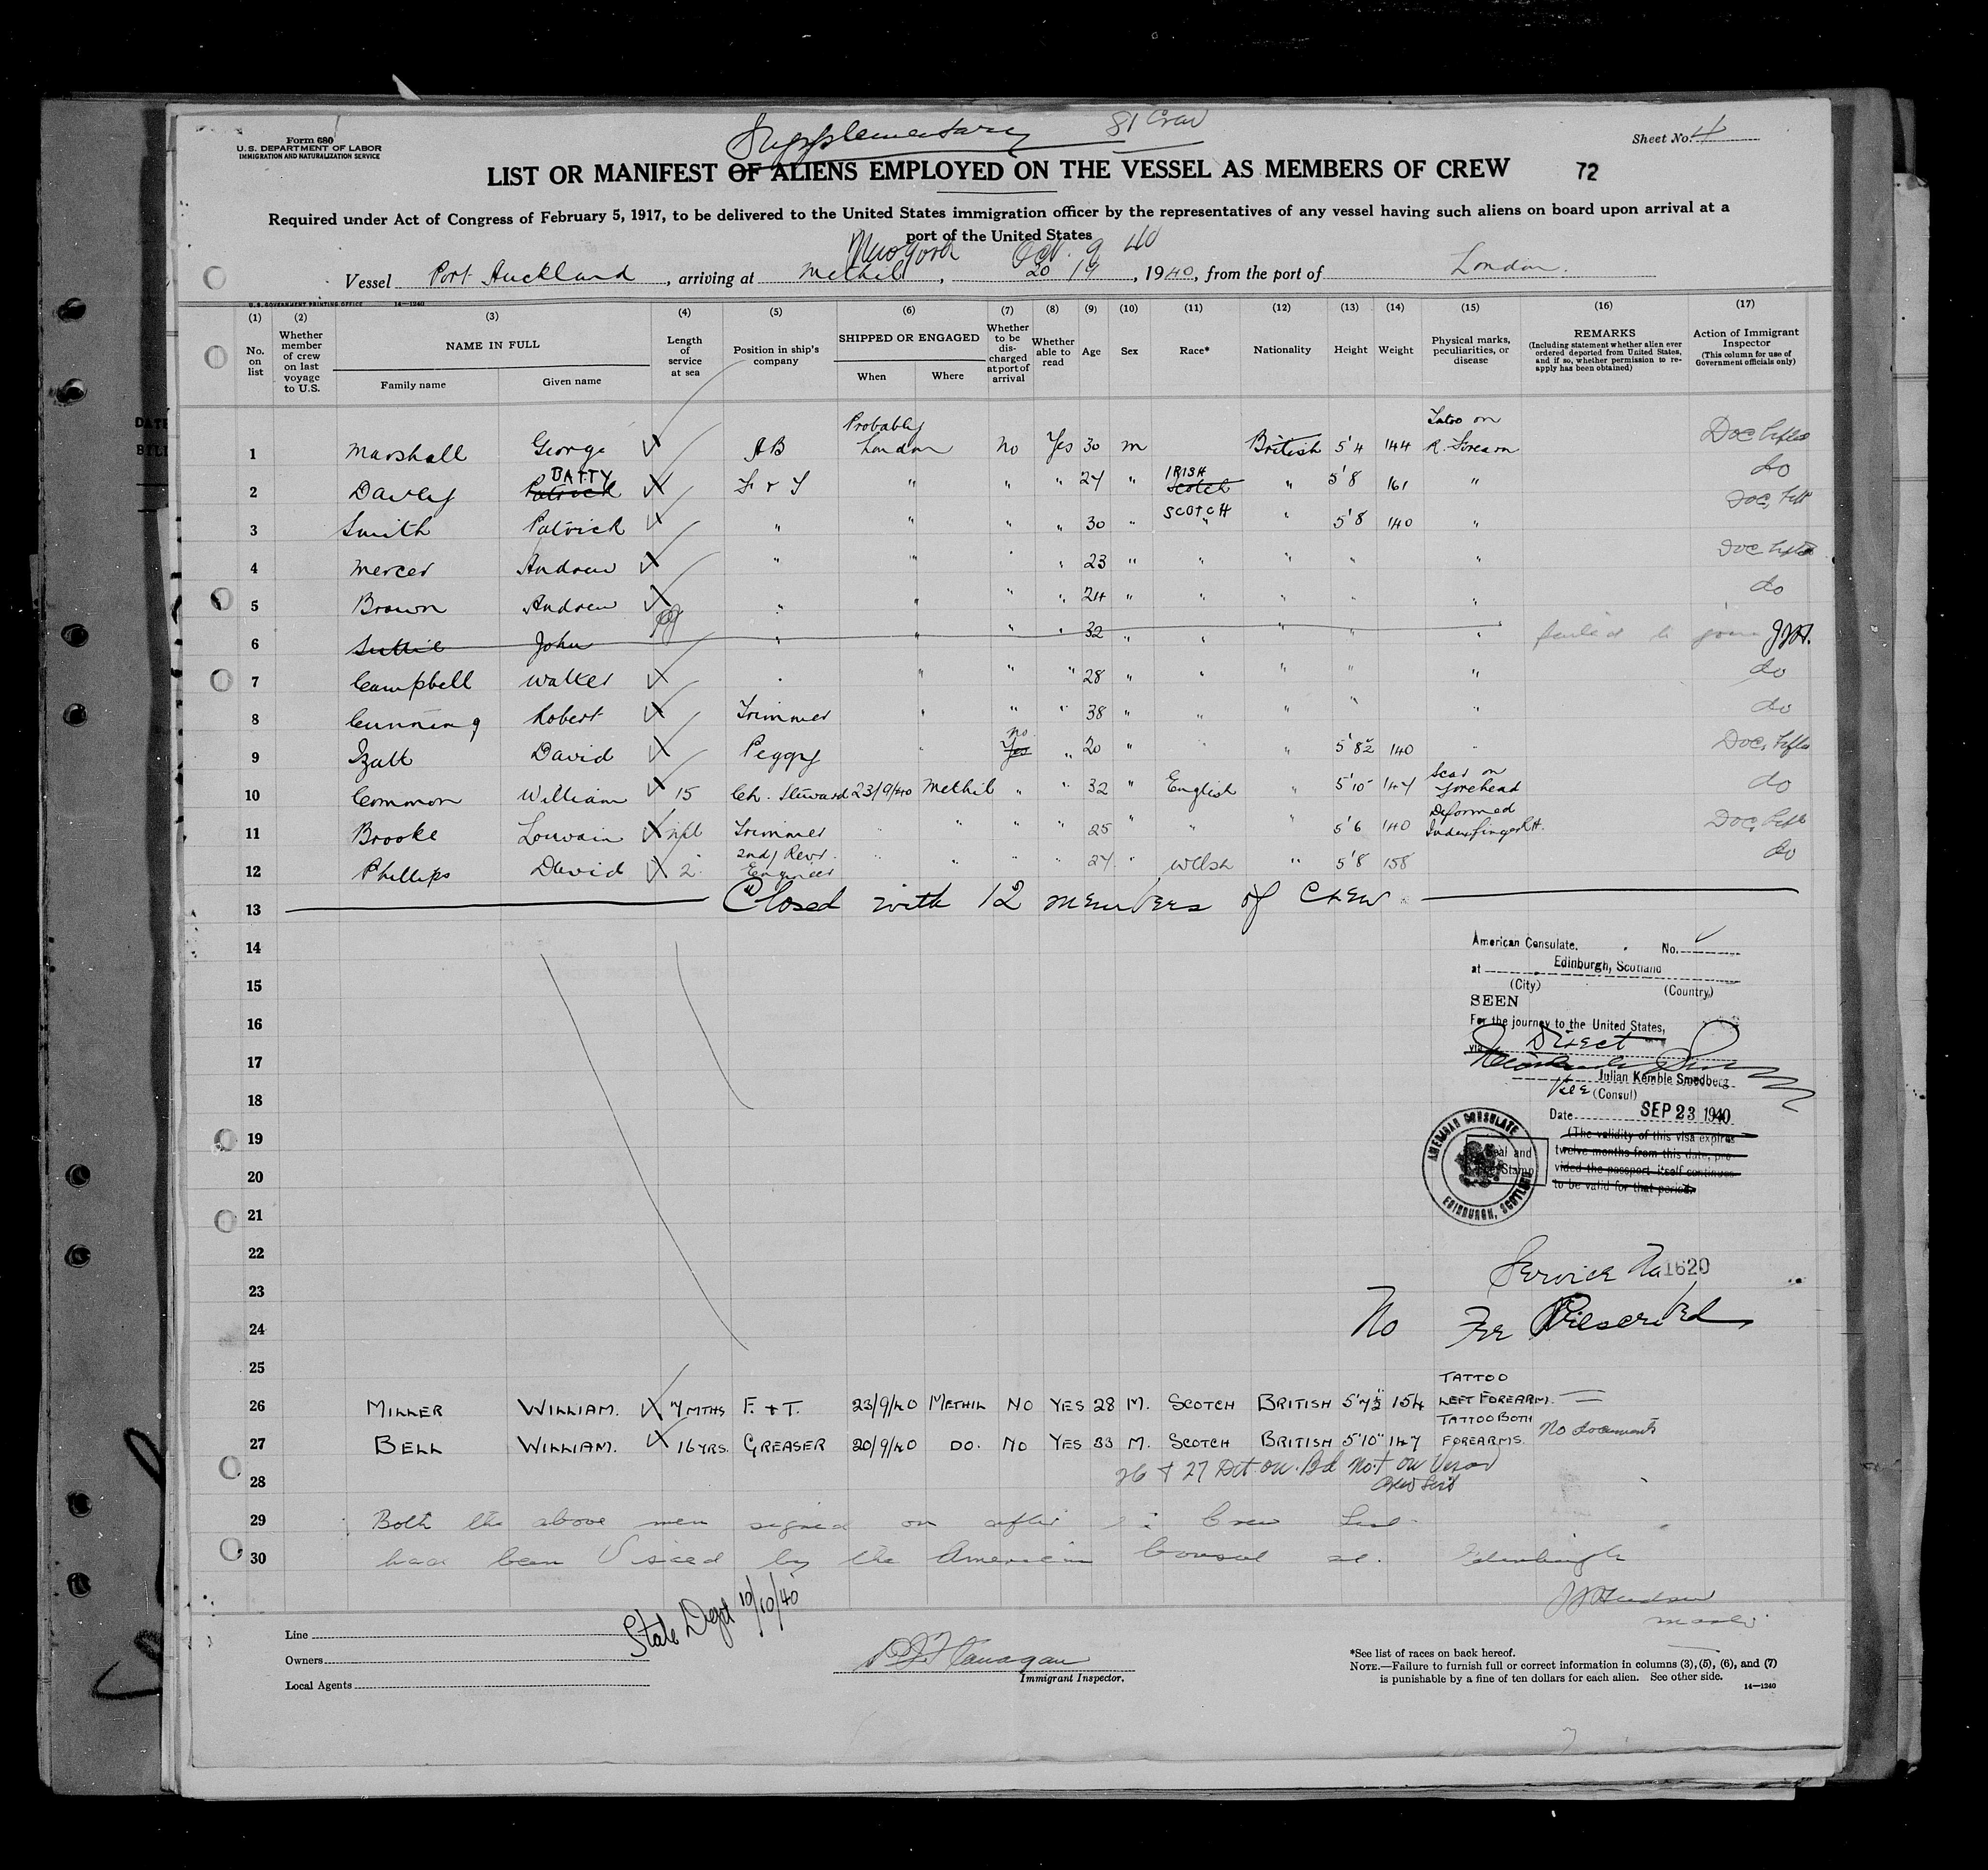 Supplementary 81 Crew
Form 680
U.S. DEPARTMENT OF LABOR
IMMIGRATION AND NATURALIZATION SERVICE
Sheet No. 4
LIST OR MANIFEST OF ALIENS EMPLOYED ON THE VESSEL AS MEMBERS OF CREW 72
Required under Act of Congress of February 5, 1917, to be delivered to the United States immigration officer by the representatives of any vessel having such aliens on board upon arrival at a
port of the United States
Oct. 9 40
Vessel Port Auckland, arriving at Methil, 20/9, 1940, from the port of London.
U.S. GOVERNMENT PRINTING OFFICE 14—1240
(1) (2) (3) (4) (5) (6) (7) (8) (9) (10) (11) (12) (13) (14) (15) (16) (17)
No. on list
Whether member of crew on last voyage to U.S.
NAME IN FULL
Family name Given name
Length of service at sea
Position in ship's company
SHIPPED OR ENGAGED
When Where
Whether to be discharged at port of arrival
Whether able to read
Age
Sex
Race*
Nationality
Height
Weight
Physical marks, peculiarities, or disease
REMARKS
(Including statement whether alien ever ordered deported from United States, and if so, whether permission to reapply has been obtained)
Action of Immigrant Inspector
(This column for use of Government officials only)
1 Marshall George AB Probably London No Yes 30 m British 5'4 144 Tatoo on R. Forearm
2 Davey Patrick BATTY F & T " " " 27 " Scotch IRISH " 5'8 161 " do
3 Smith Patrick " " " " 30 " SCOTCH " " 5'8 140 "
4 Mercer Andrew " " " " 23 " " " " "
5 Brown Andrew " " " " 24 " " " " " do
6 Suttie John " " " " 32 " " " " " failed to join JJH.
7 Campbell Walter " " " " 28 " " " " " do
8 Cunning Robert Trimmer " " " 38 " " " " " do
9 Izatt David Peggy " Yes no " 20 " " " 5'8½ 140 "
10 Common William 15 Ch. Steward 23/9/40 Methil " " 32 " English " 5'10 147 Scar on Forehead do
11 Brooke Louvain nil Trimmer " " " " 25 " " " 5'6 140 Deformed Index finger R.H.
12 Phillips David 2 2nd Refr. Engineer " " " " 27 " Welsh " 5'8 158 do
13 Closed with 12 members of crew.
14
15
16
17
18
19
20
21
22
23
24
25
American Consulate. No.
at Edinburgh, Scotland
(City) (Country)
SEEN
For the journey to the United States,
via Direct
Julian Kemble Smedberg
Vice (Consul)
Date SEP 23 1940
(The validity of this visa expires
twelve months from this date, pro-
vided the passport itself continues
to be valid for that period.
Seal and
Stamp
AMERICAN CONSULATE
EDINBURGH, SCOTLAND
Service No 1620
No Fee Prescribed
26 MILLER WILLIAM. 7 MTHS F. + T. 23/9/40 METHIL NO YES 28 M. SCOTCH BRITISH 5'7½" 154 TATTOO LEFT FOREARM.
27 BELL WILLIAM. 16 YRS. GREASER 20/9/40 DO. NO YES 33 M. SCOTCH BRITISH 5'10" 147 TATTOO BOTH FOREARMS. No documents
28 26 & 27 Det on Bd Not on Visaed Crew List
29 Both the above men signed on after Crew List
30 had been Visaed by the American Consul at. Edinburgh
Master.
State Dept 10/10/40
Line
Owners
Local Agents
Immigrant Inspector.
*See list of races on back hereof.
NOTE.—Failure to furnish full or correct information in columns (3), (5), (6), and (7)
is punishable by a fine of ten dollars for each alien. See other side.
14—1240